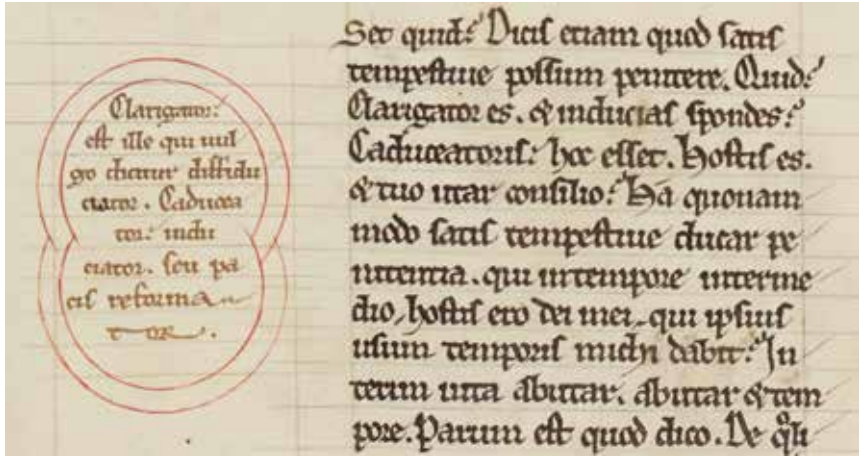 Clarigator:
est ille qui uul
go dicitur diffidu
ciator. Caducea
tor: indu
ciator. seu pa
cis reforma
tor.
Set quid? Dicis etiam quod satis
tempestiue possum penitere. Quid?
Clarigator es. & inducias spondes?
Caduceatoris: hoc esset. Hostis es.
& tuo utar consilio? Ha quonam
modo satis tempestiue ducar pe
nitentia. qui in tempore interme
dio, hostis ero dei mei. qui ipsius
usum temporis michi dabit? In
terim uita abutar. abutar & tem
pore. Parum est quod dico. De qͣli